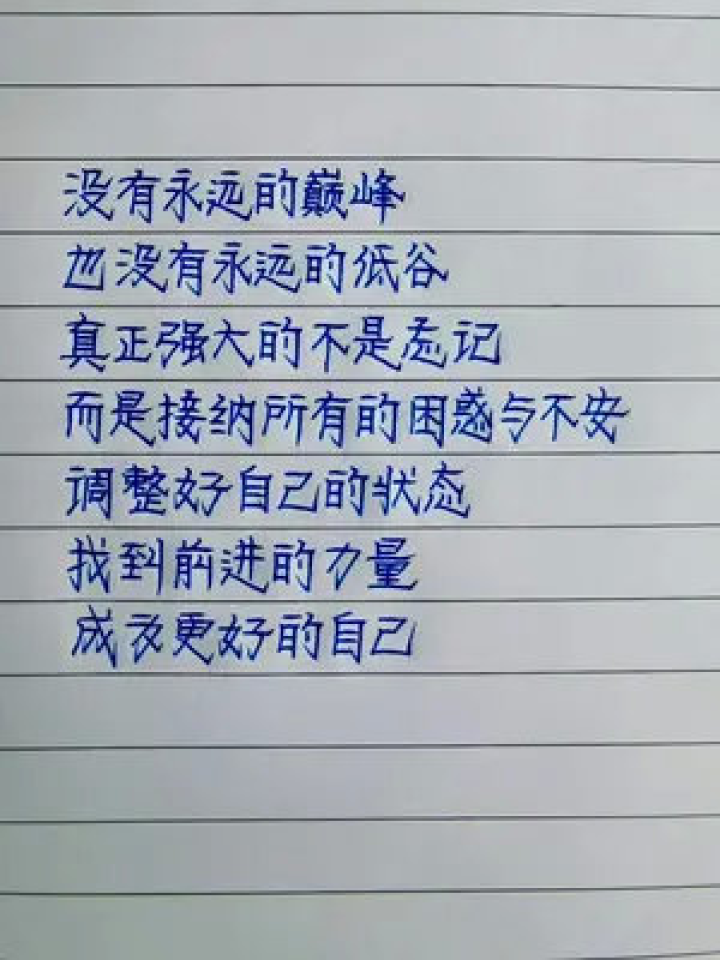 没有永远的巅峰
也没有永远的低谷
真正强大的不是忘记
而是接纳所有的困惑与不安
调整好自己的状态
找到前进的力量
成为更好的自己